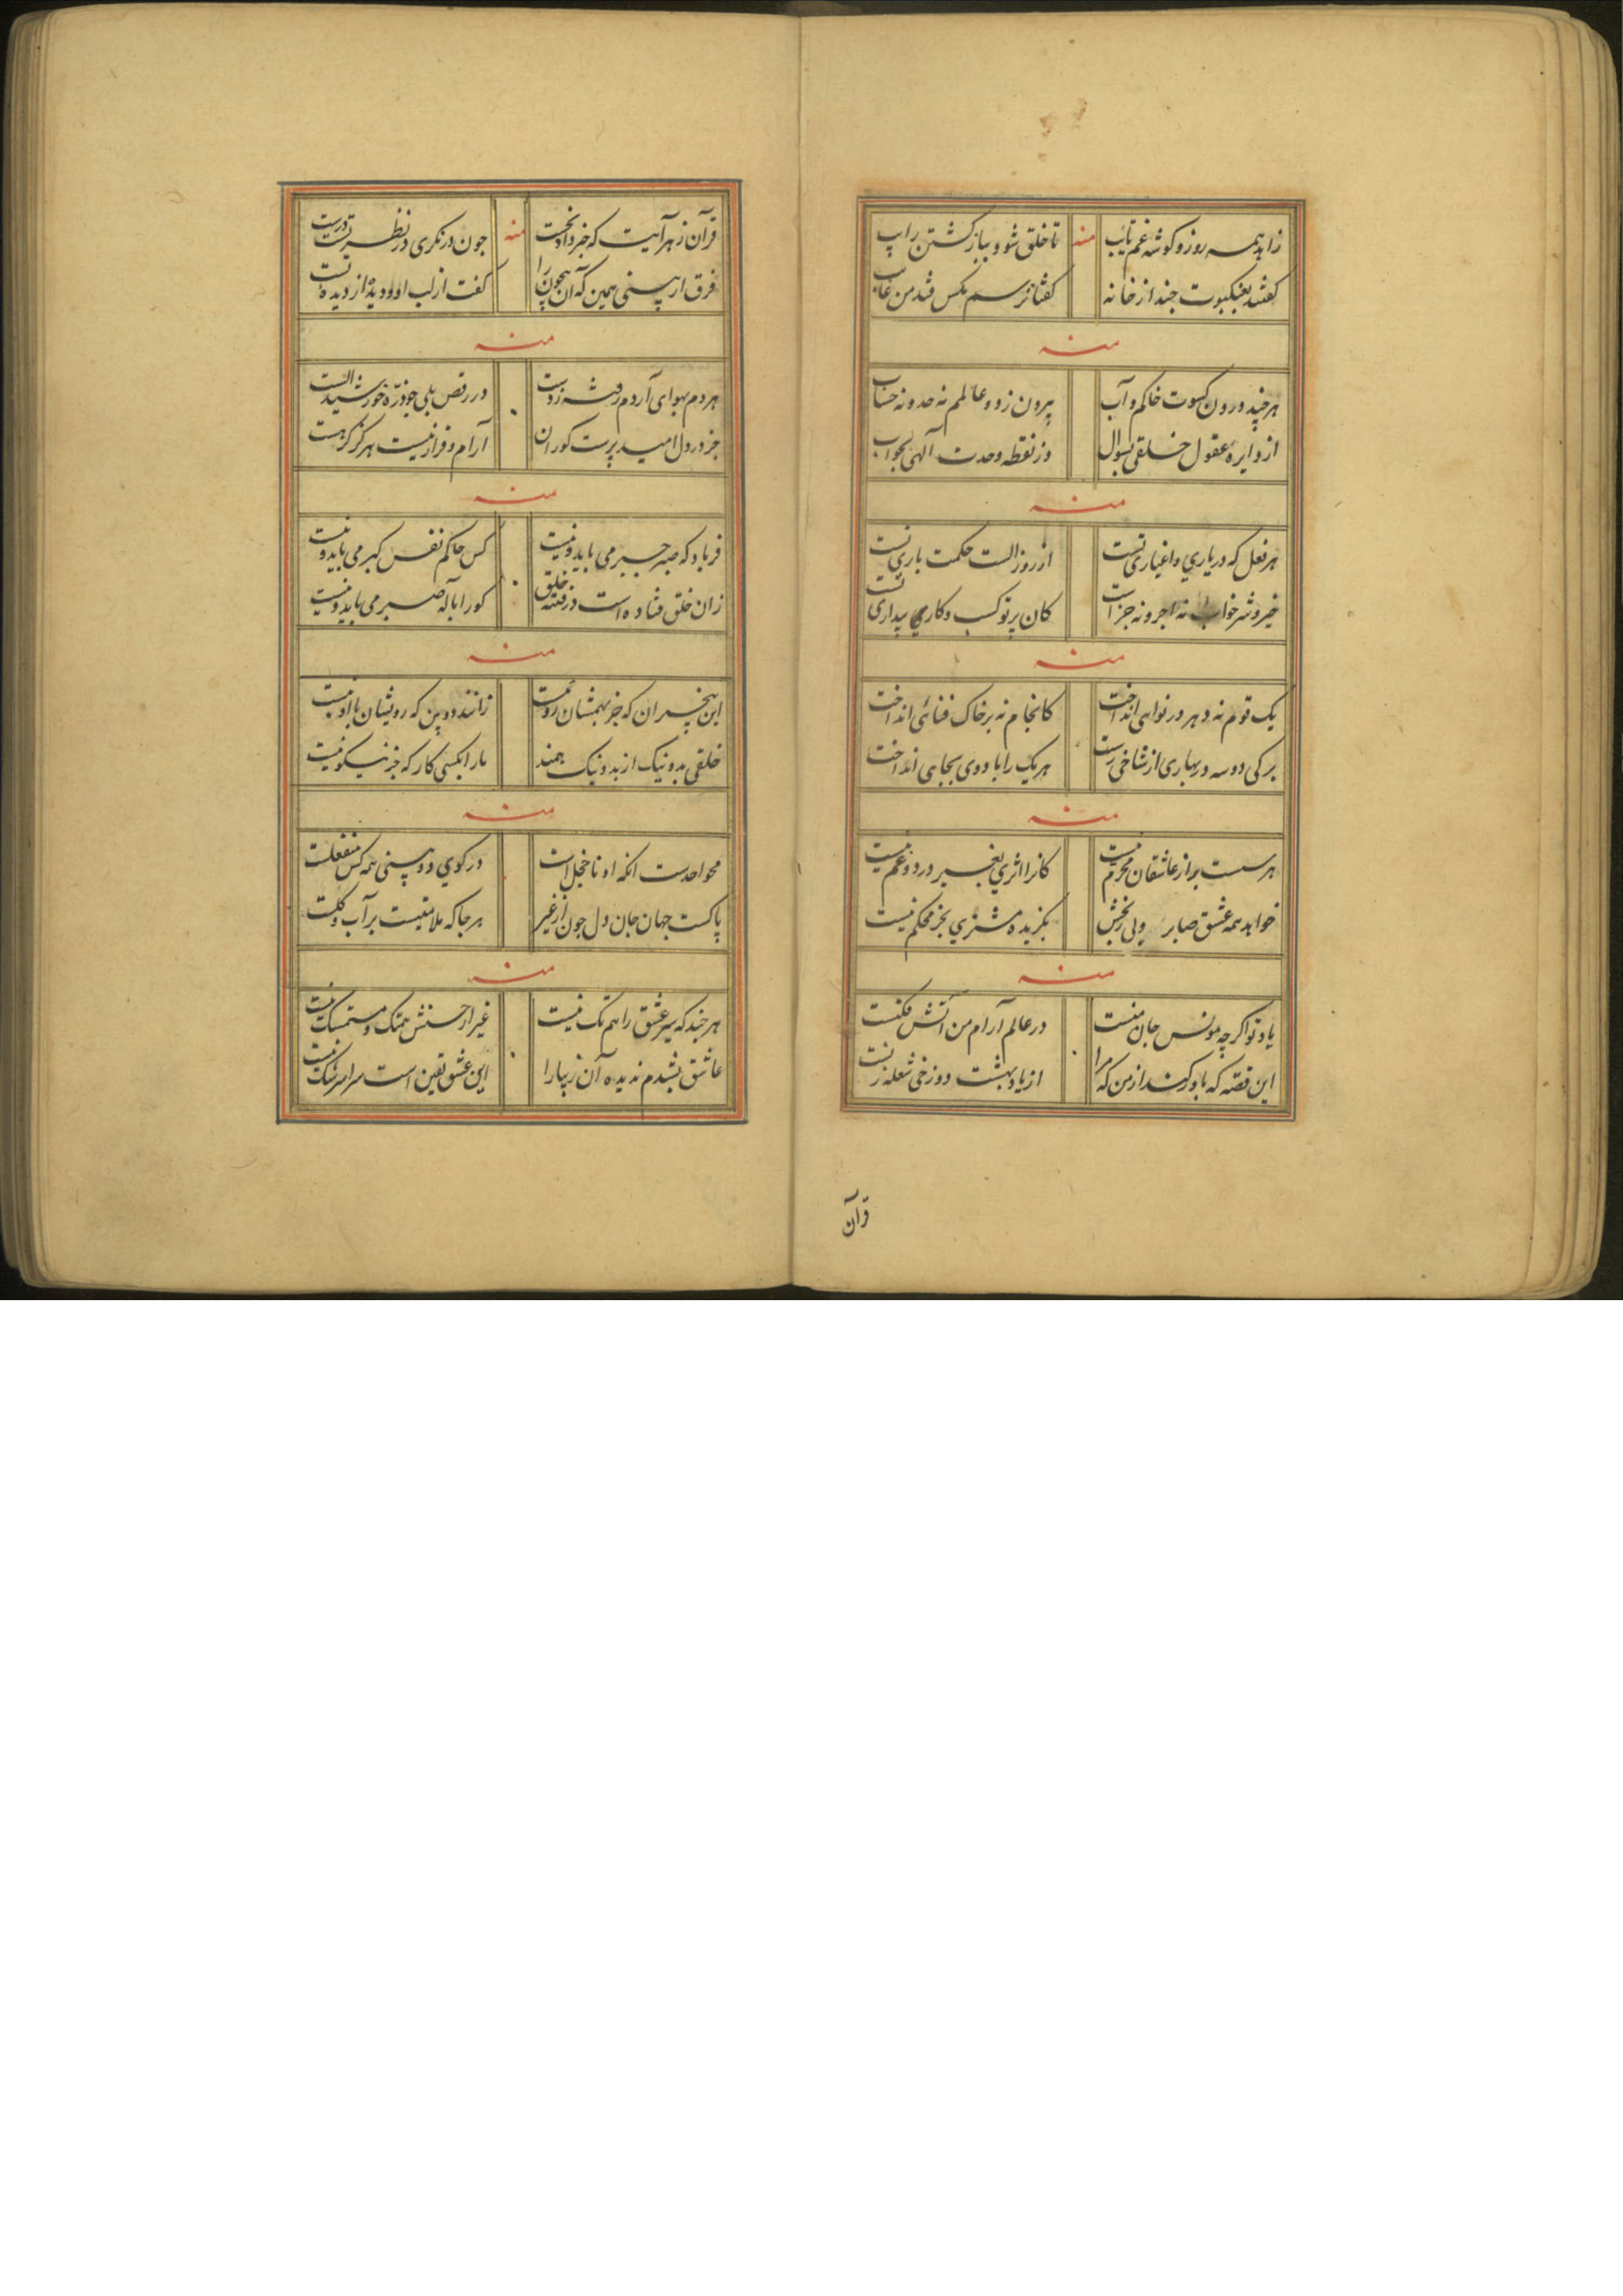 زاهد همه روز و گوشه غم تایب
منه
تا خلق شود و بباز گشتن راب
گفتند بعنکبوت چند از خانه
گفتا ترسم مگس فتد من غایب
منه
هر چند درون کسوت خاکم و آب
بیرون ز دو عالمم نه حد و نه حساب
از دایره عقول خلقی بسوال
وز نقطه وحدت آلهی بجواب
منه
هر فعل که در یاری و اغیاری تست
از روز الست حکمت باری تست
خیر و شر خواب نه اجر و نه جزا است
کان پرتو کسب و کار بیداری تست
منه
یک قوم نه دهر در نوایی انداخت
کانجام نه بر خاک فنائی انداخت
برگی دو سه در بهاری از شاخی رست
هر یک را باد دی بجایی انداخت
منه
هر سست براز عاشقان محرم نیست
کانرا اثری بغیر درد و غم نیست
خواهد همه عشق صابر ولی رنجش
بگزیده مشتری بجز محکم نیست
منه
یاد تو اگر چه مونس جان منست
در عالم آرام من آتش فکنست
این قصه که باور کند از من که مرا
از یاد بهشت دوزخی شعله زنست
قرآن
قرآن ز هر آیت که خبر داد نخست
منه
چون در نگری در نظر تست درست
فرق ار بینی همین که آن بیچون را
گفت از لب او و دیده از دیده تست
منه
هر دم بهوای آردم رفته ز دست
در رقص بلی چو ذره خورشید الست
جز در دل امید پرست کوران
آرام و قرار نیست هرگز گر هست
منه
فریاد که صبر جبر می باید و نیست
کس حاکم نفس گبر می باید و نیست
زان خلق فتاده است در فتنه خلق
کورا باله صبر می باید و نیست
منه
این بیخبران که جز بهمشان رو نیست
زانند دو بین که رویشان با او نیست
خلقی بد و نیک از بد و نیک همند
ما را بکسی کار که جز نیکو نیست
منه
محو احدست آنکه او نا خجل است
در کوی دو بینی همه کس منفعلست
پاکست جهان جان و دل چون از غیر
هر جا که ملامتیست بر آب و گلست
منه
هر چند که سیر عشق را هم تک نیست
غیر از حسنش همتک و مستمسک نیست
عاشق نشدم ندیده آن زیبا را
این عشق یقین است سراسر شک نیست